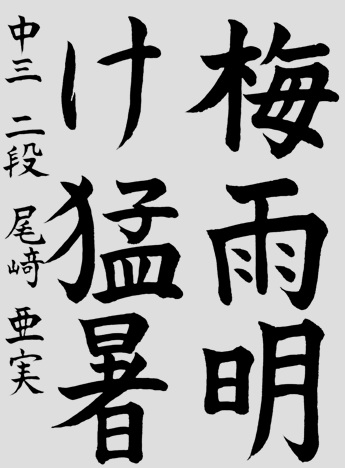 梅雨明
け猛暑
中三 二段 尾﨑 亜実